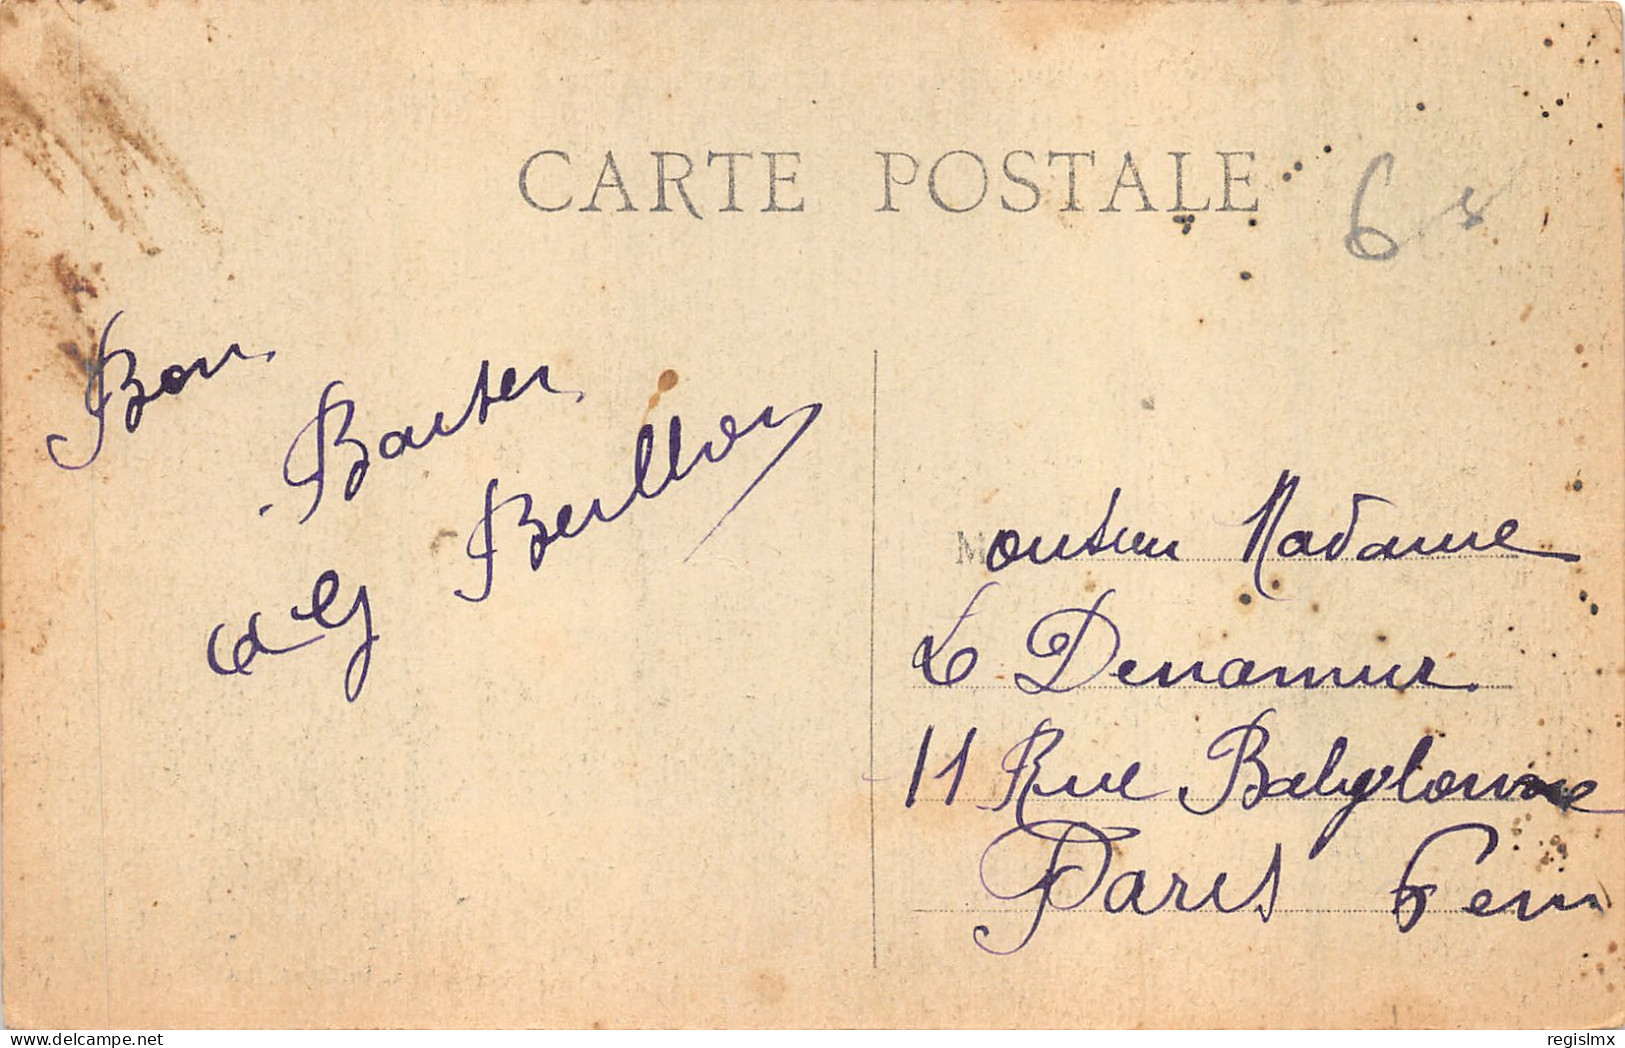 CARTE POSTALE
6
Bon
Baiser
Monsieur Madame
Le Denamur
11 Rue Babylonne
Paris 6em
delcampe.net
regislmx